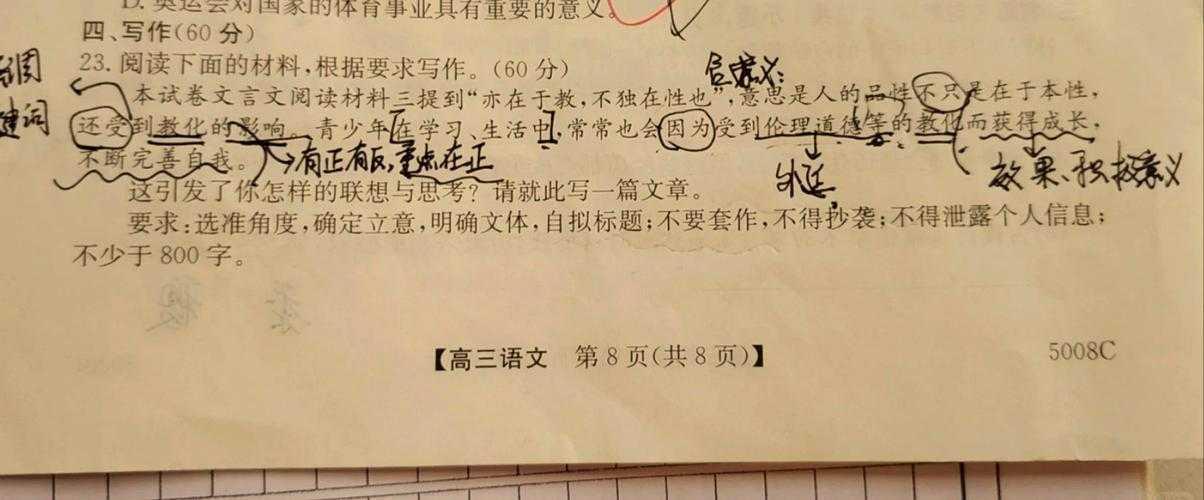 D. 奥运会对国家的体育事业具有重要的意义。
四、写作(60分)
23. 阅读下面的材料,根据要求写作。(60分)
含义:
本试卷文言文阅读材料三提到“亦在于教,不独在性也”,意思是人的品性不只是在于本性,
键词
还受到教化的影响。青少年在学习、生活中,常常也会因为受到伦理道德等的教化而获得成长,
不断完善自我。
有正有反,重点在正
外延
效果、积极意义
这引发了你怎样的联想与思考?请就此写一篇文章。
要求:选准角度,确定立意,明确文体,自拟标题;不要套作,不得抄袭;不得泄露个人信息;
不少于800字。
【高三语文 第8页(共8页)】
5008C